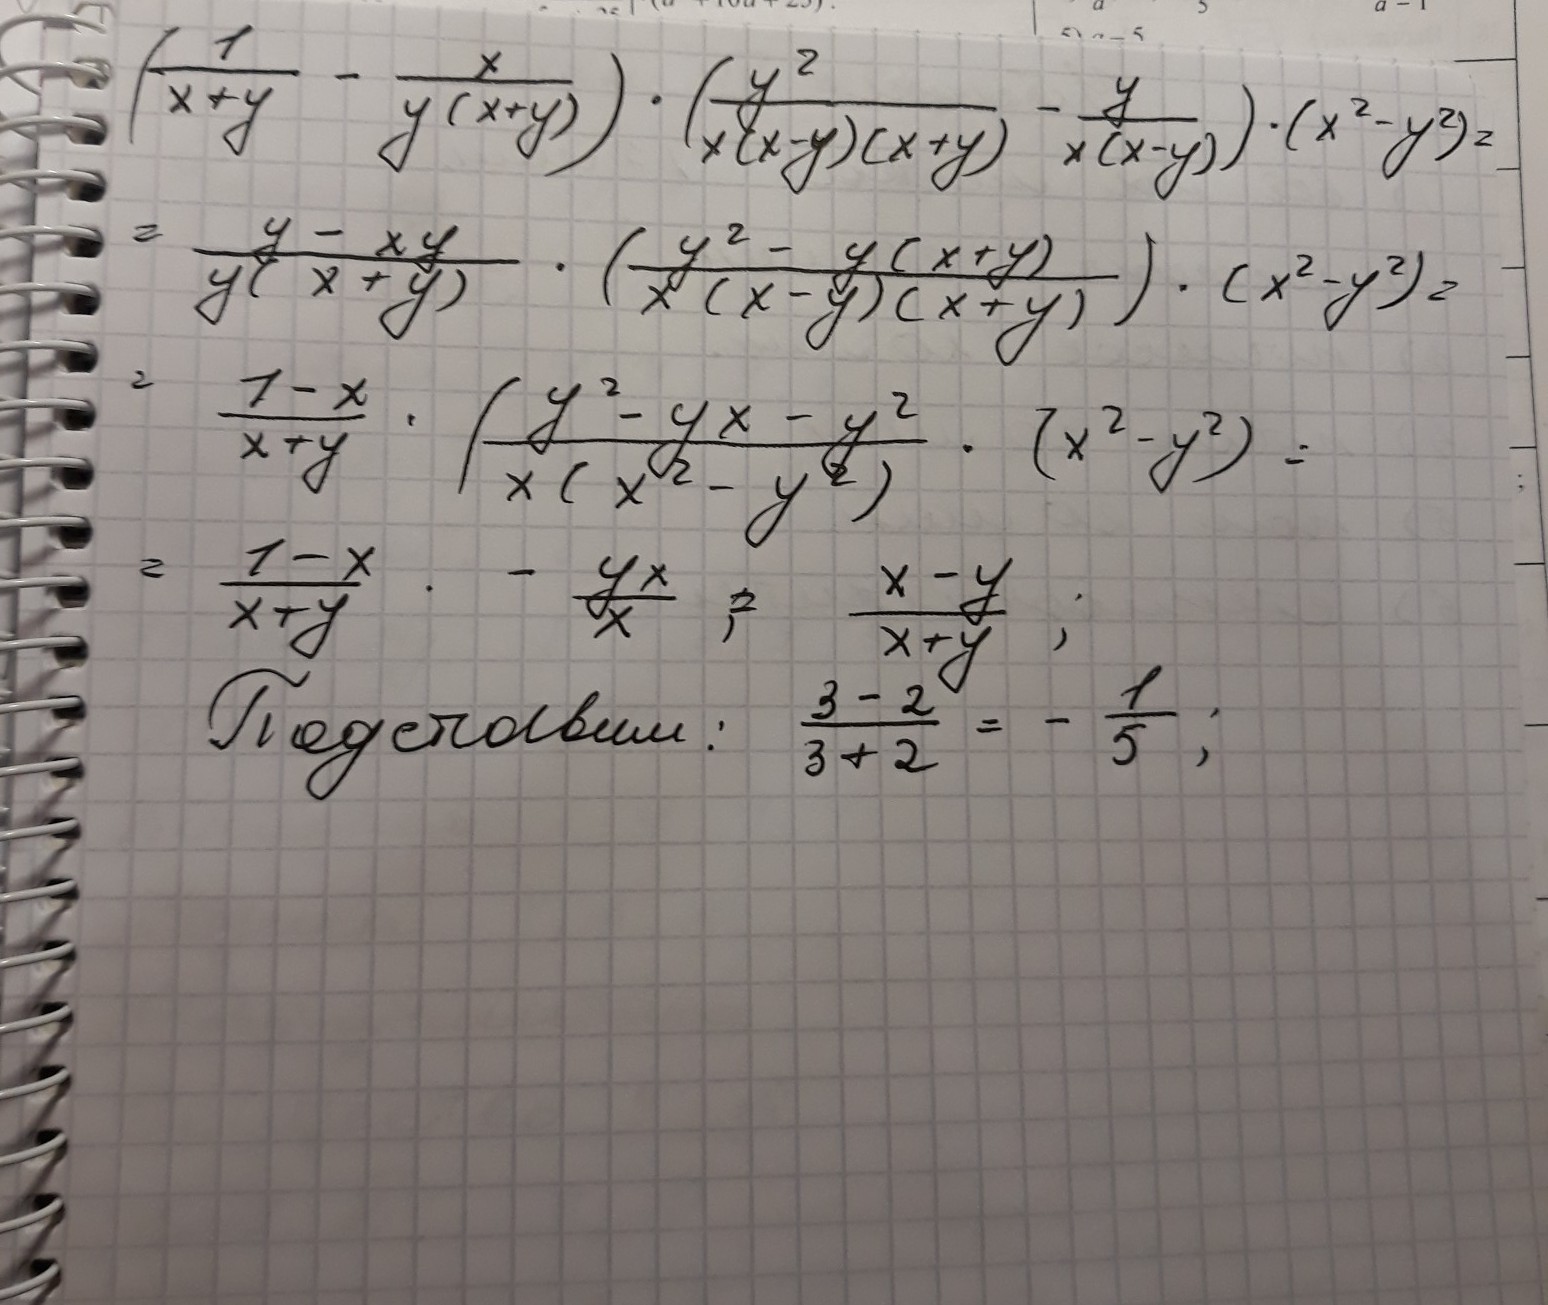 (1/(x+y) - x/(y(x+y))) · (y²/(x(x-y)(x+y)) - y/(x(x-y))) · (x²-y²) =
= (y - xy)/(y(x+y)) · ((y² - y(x+y))/(x(x-y)(x+y))) · (x²-y²) =
= (1-x)/(x+y) · ((y² - yx - y²)/(x(x²-y²)) · (x²-y²) =
= (1-x)/(x+y) · - yx/x ; = (x-y)/(x+y) ;
Подставим: (3-2)/(3+2) = - 1/5 ;